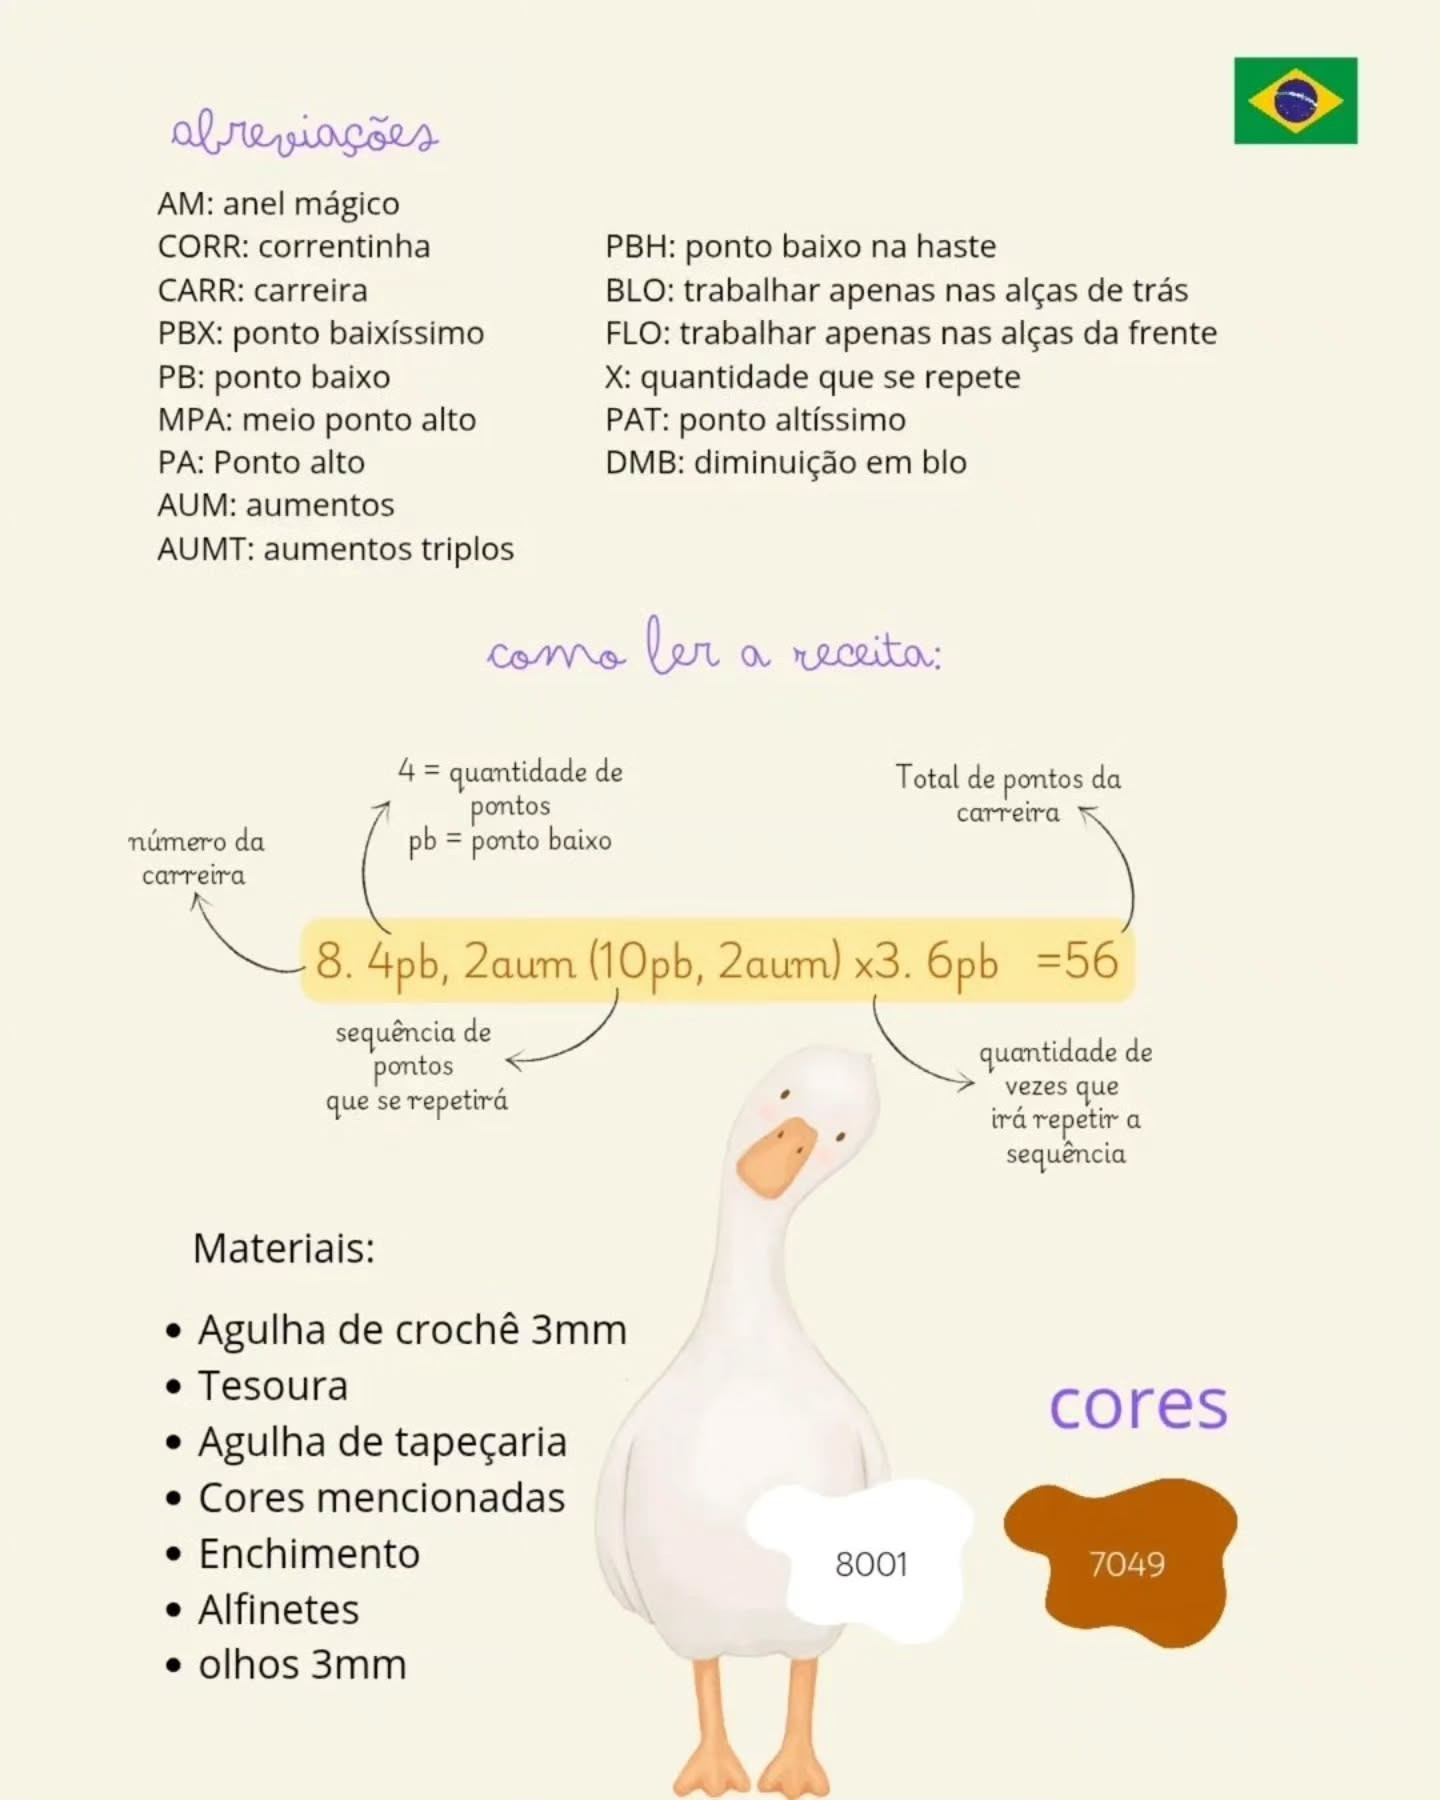 abreviações
AM: anel mágico
CORR: correntinha
CARR: carreira
PBX: ponto baixíssimo
PB: ponto baixo
MPA: meio ponto alto
PA: Ponto alto
AUM: aumentos
AUMT: aumentos triplos
PBH: ponto baixo na haste
BLO: trabalhar apenas nas alças de trás
FLO: trabalhar apenas nas alças da frente
X: quantidade que se repete
PAT: ponto altíssimo
DMB: diminuição em blo
como ler a receita:
número da
carreira
4 = quantidade de
pontos
pb = ponto baixo
Total de pontos da
carreira
8. 4pb, 2aum (10pb, 2aum) x3. 6pb =56
sequência de
pontos
que se repetirá
quantidade de
vezes que
irá repetir a
sequência
Materiais:
• Agulha de crochê 3mm
• Tesoura
• Agulha de tapeçaria
• Cores mencionadas
• Enchimento
• Alfinetes
• olhos 3mm
cores
8001
7049